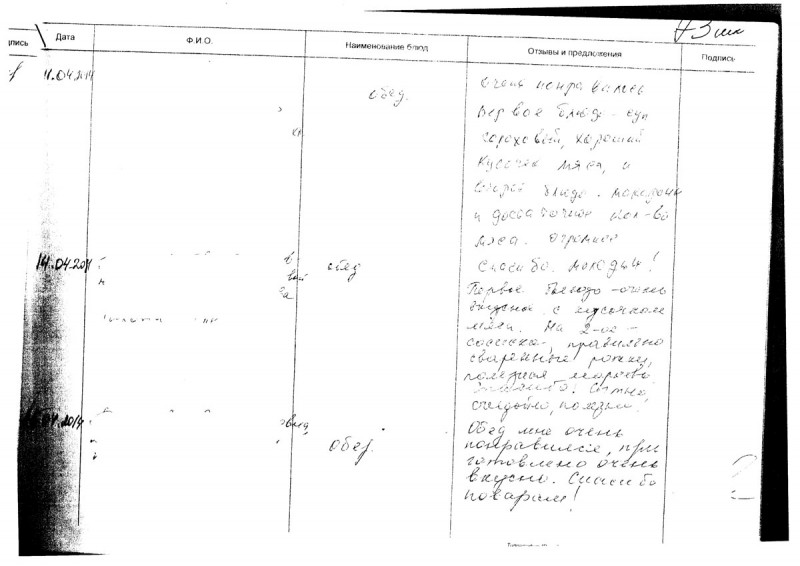 дпись
Дата
Ф.И.О.
Наименование блюд
Отзывы и предложения
Подпись
11.04.2014
обед.
очень понравилось
первое блюдо - суп
гороховый, хороший
кусочек мяса, и
второе блюдо - макароны
и достаточное кол-во
мяса. Огромное
спасибо. Молодцы!
14.04.2014
обед
Первое блюдо - очень
вкусное с кусочком
мяса. На 2-ое -
сосиска, правильно
сваренные рожки,
полезная морковь.
Спасибо! Сытно,
съедобно, полезно!
04.2014
Обед.
Обед мне очень
понравился, при
готовлено очень
вкусно. Спасибо
поварам!